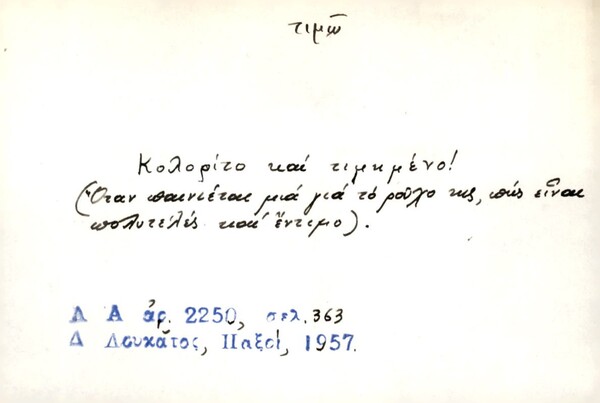 τιμῶ
Κολορίτο καί τιμημένο!
(Ὅταν παινιέται μιά γιά τό ροῦχο της, πώς εἶναι
πολυτελές καί ἔντιμο).
Λ Α ἀρ. 2250, σελ. 363
Δ Λουκᾶτος, Παξοί, 1957.